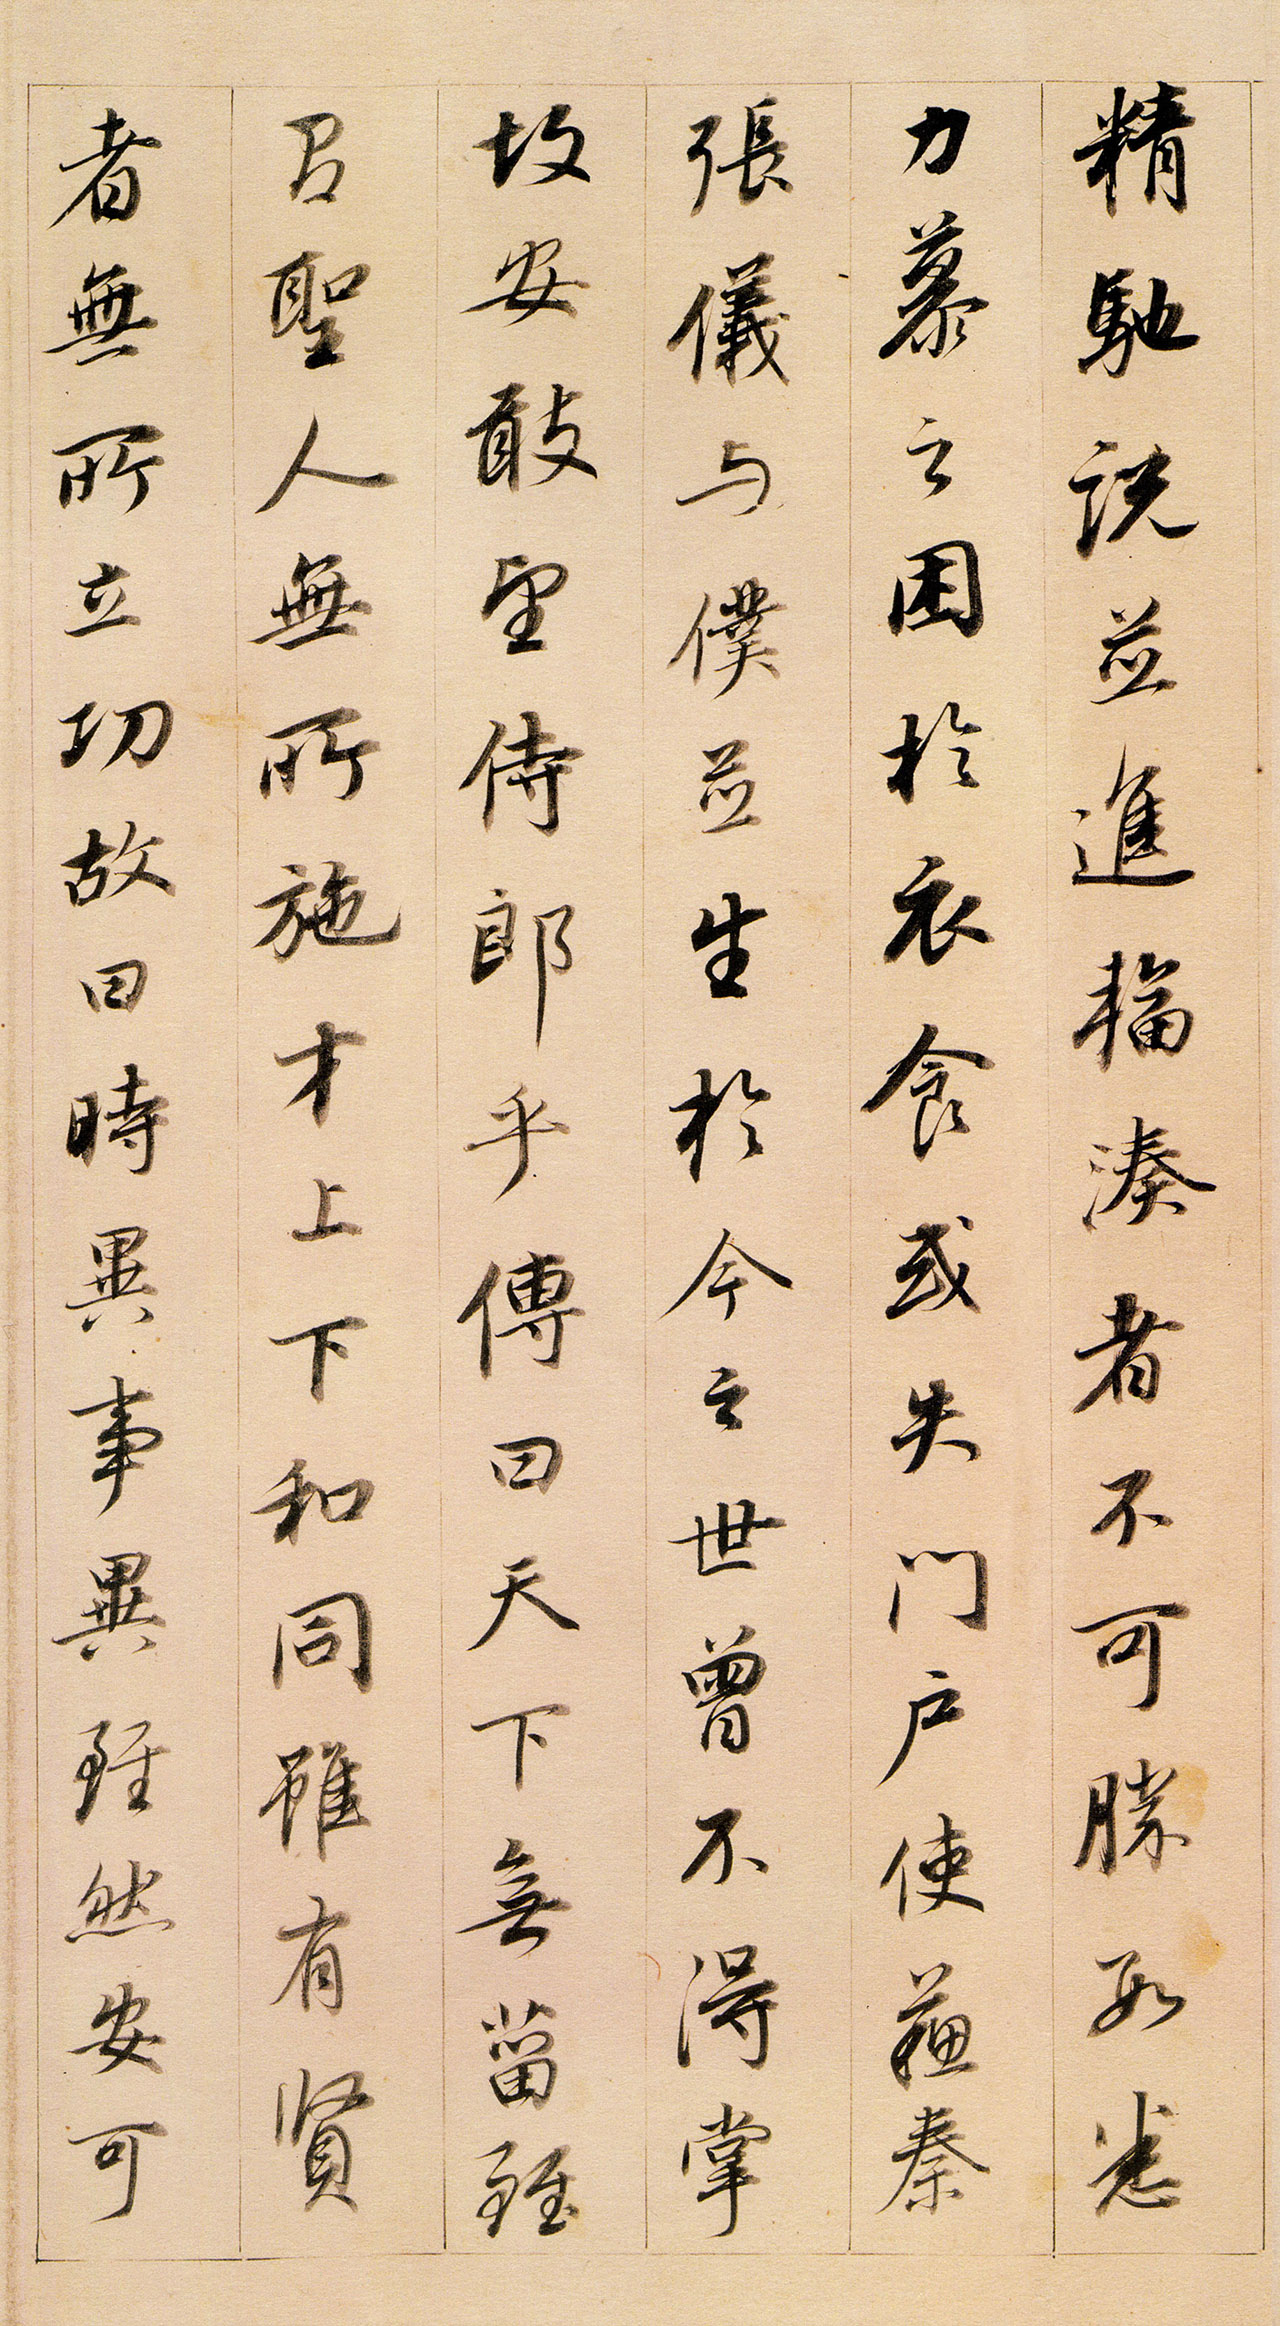 精馳説並進輻湊者不可勝數悉
力慕之困於衣食或失門戶使蘇秦
張儀与僕並生於今之世曾不得掌
故安敢望侍郎乎傳曰天下無菑雖
有聖人無所施才上下和同雖有賢
者無所立功故曰時異事異雖然安可